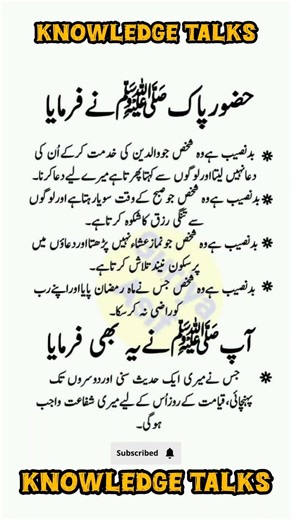 KNOWLEDGE TALKS
حضور پاک ﷺ نے فرمایا
* بدنصیب ہے وہ شخص جو والدین کی خدمت کرکے اُن کی
دعا نہیں لیتا اور لوگوں سے کہتا پھرتا ہے میرے لیے دعا کرنا۔
* بدنصیب ہے وہ شخص جو صبح کے وقت سویا رہتا ہے اور لوگوں
سے تنگی رزق کا شکوہ کرتا ہے۔
* بدنصیب ہے وہ شخص جو نماز عشاء نہیں پڑھتا اور دعاؤں میں
پرسکون نیند تلاش کرتا ہے۔
* بدنصیب ہے وہ شخص جس نے ماہ رمضان پایا اور اپنے رب
کو راضی نہ کرسکا۔
آپ ﷺ نے یہ بھی فرمایا
* جس نے میری ایک حدیث سنی اور دوسروں تک
پہنچائی، قیامت کے روز اُس کے لیے میری شفاعت واجب
ہوگی۔
Subscribed
KNOWLEDGE TALKS